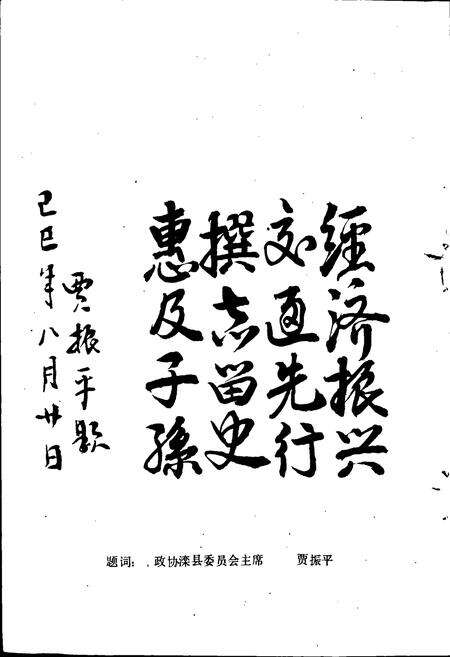 經济振兴
交通先行
撰志留史
惠及子孫
贾振平题
己巳年八月廿日
题词: 政协滦县委员会主席 贾振平